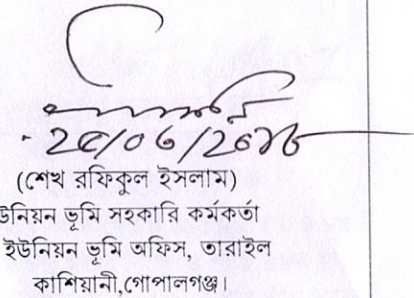 (শেখ রফিকুল ইসলাম)
উনিয়ন ভূমি সহকারি কর্মকর্তা
ইউনিয়ন ভূমি অফিস, তারাইল
কাশিয়ানী,গোপালগঞ্জ।